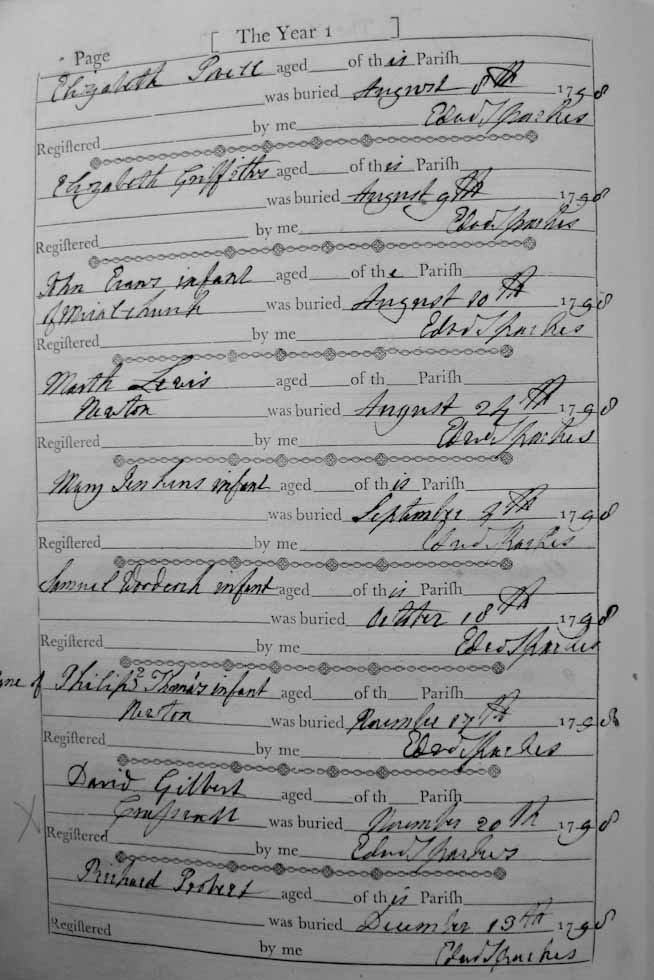 [ The Year 1 ]
Page
Elizabeth aged of this Parish
was buried August 8th 1798
Registered by me Edwd Sparkes
Elizabeth Griffiths aged of this Parish
was buried August 9th 1798
Registered by me Edwd Sparkes
John Evans infant aged of the Parish
of was buried August 10th 1798
Registered by me Edwd Sparkes
Marth Lewis aged of th Parish
Newton was buried August 24th 1798
Registered by me Edwd Sparkes
Mary Jenkins infant aged of this Parish
was buried September 1798
Registered by me Edwd Sparkes
Samuel infant aged of this Parish
was buried October 18th 1798
Registered by me Edwd Sparkes
of Philip Thomas infant aged of th Parish
Newton was buried November 17th 1798
Registered by me Edwd Sparkes
David Gilbert aged of th Parish
was buried November 20th 1798
Registered by me Edwd Sparkes
Richard Probert aged of this Parish
was buried December 13th 1798
Registered by me Edwd Sparkes